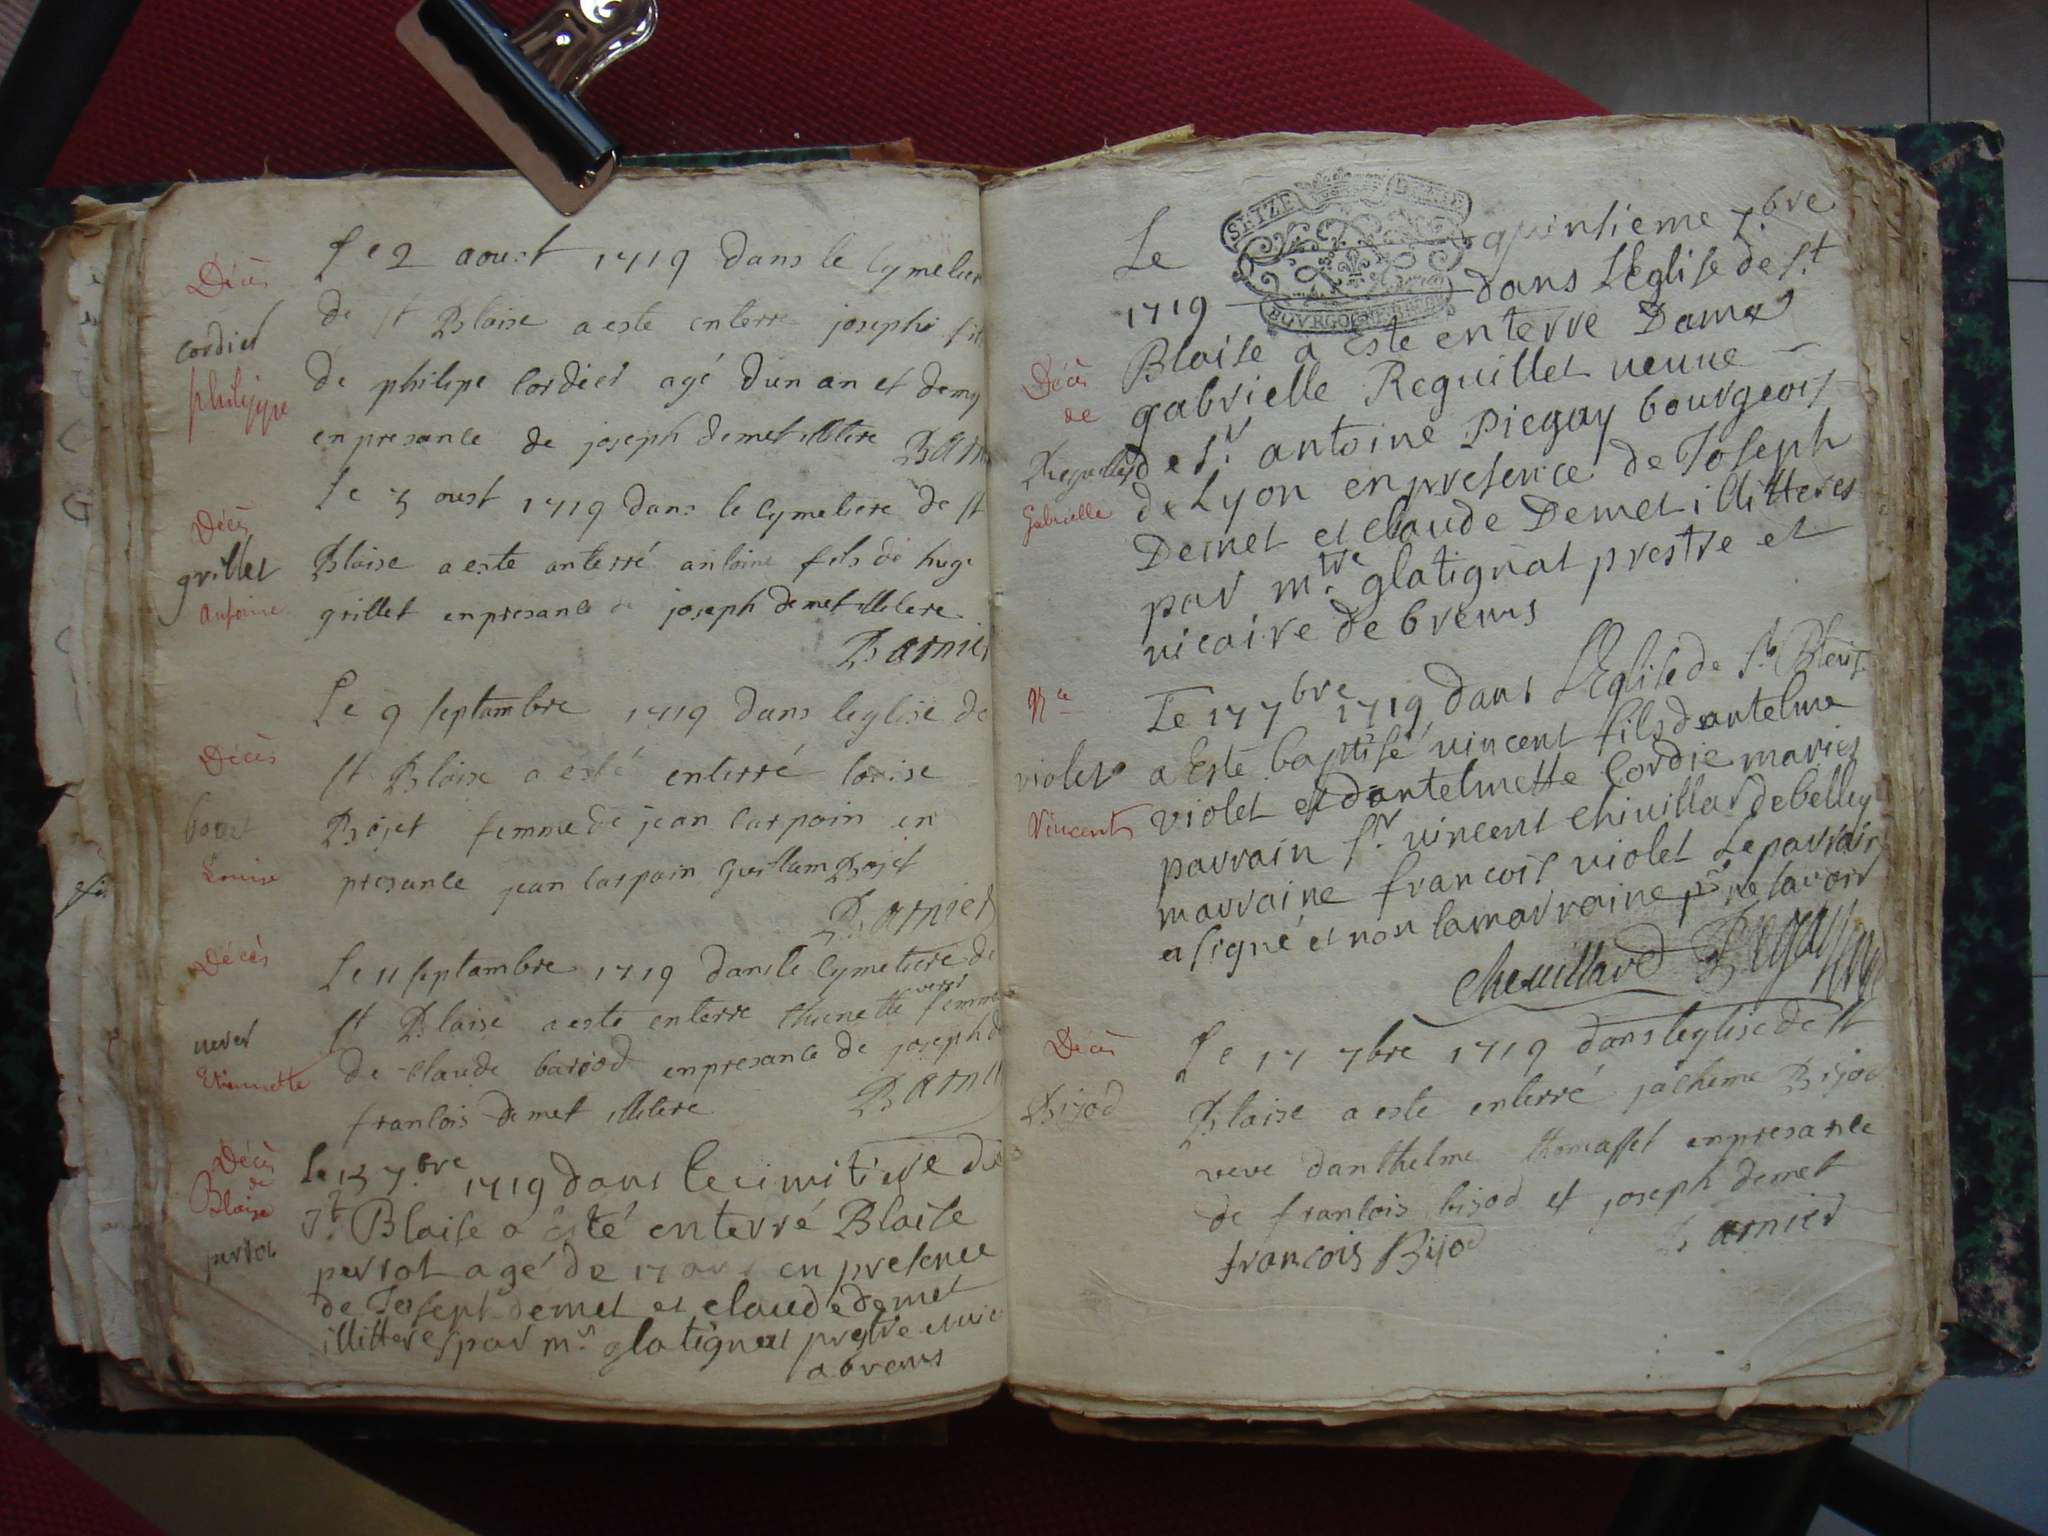 Décès
cordier
philippe
Le 2 aoust 1719 dans le cymetier
de st Blaise a este enterre joseph fils
de philipe cordier agé dun an et demy
en presance de joseph demet illitere Barn
Décès
grillet
antoine
Le 5 oust 1719 dans le cymetiere de st
Blaise a este anterré antoine fils de hugue
grillet en presance de joseph demet illitere
Barnier
Décès
Louise
Le 9 septambre 1719 dans leglise de
st Blaise a esté enterré louise
Bojet femme de jean carpain en
presance jean carpain Bojet
Barnier
Décès
veret
Etiennette
Le 11 septambre 1719 dans le cymetiere de
st Blaise a este enterre thienette veret femme
de claude bariod en presance de joseph de
francois demet illitere Barni
Décès
de
Blaise
perrot
Le 13 7.bre 1719 dans le cimitiere de
St. Blaise a Esté enterré Blaise
perrot agé de 17 ans en presence
de Joseph demet et claude demet
illitteres par mr. glatignat prestre et vic
a brens
Le quinsieme 7.bre
SEIZE DENIERS
BOURGOGNE
1719 dans LEglise de St
Blaise a Este enterré Dame
gabrielle Reguillet veuve
de Sr. antoine Piegay bourgeois
de Lyon en presence de Joseph
Demet et claude Demet illitteres
par mtre. glatignat prestre et
vicaire de brens
Décès
de
Reguillet
Gabrielle
Nce
violet
Vincent
Le 17 7bre 1719 dans LEglise de St Blaise
a Este baptisé vincent fils dantelme
violet et dantelmette Cordie mariez
parrain Sr. vincent chivillar de belley
marraine francoise violet Le parrain
a signé et non la marraine pr ne savoir
Cheuillard
Décès
Bijod
Le 17 7bre 1719 dans leglise de st
Blaise a este enterré jacheme Bijod
veve danthelme thomasset en presance
de francois bijod et joseph demet
francois Bijod Barnier